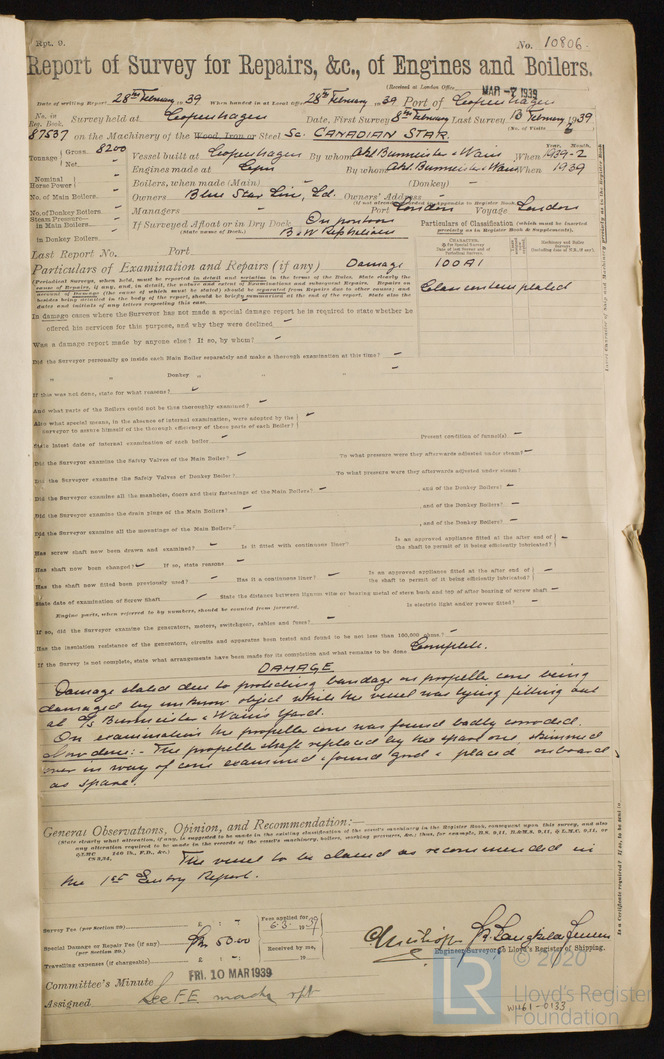 Rpt. 9. No. 10806.
Report of Survey for Repairs, &c., of Engines and Boilers.
(Received at London Office MAR -7 1939
Date of writing Report 28th February 1939 When handed in at Local Office 28th February 1939 Port of Copenhagen
No. in Reg. Book. Survey held at Copenhagen Date, First Survey 8th February Last Survey 13 February 1939
(No. of Visits
87537 on the Machinery of the Wood, Iron or Steel Sc. CANADIAN STAR.
Tonnage Gross 8200 Vessel built at Copenhagen By whom Akt. Burmeister & Wain When 1939-2
Year. Month.
Net
Engines made at Copen By whom Akt. Burmeister & Wain When 1939
Nominal Horse Power Boilers, when made (Main) (Donkey)
No. of Main Boilers Owners Blue Star Line, Ld. Owners' Address
(If not already recorded in Appendix to Register Book.)
No. of Donkey Boilers Managers Port London Voyage London
Steam Pressure in Main Boilers
in Donkey Boilers If Surveyed Afloat or in Dry Dock On pontoon
(State name of Dock.) B&W Refshaleøen
Particulars of Classification (which must be inserted precisely as in Register Book & Supplements).
Last Report No. Port
Particulars of Examination and Repairs (if any) Damage
100A1
Class contemplated
(Periodical Surveys, when held, must be reported in detail and seriatim in the terms of the Rules. State clearly the
In damage cases where the Surveyor has not made a special damage report he is required to state whether he
offered his services for this purpose, and why they were declined
Was a damage report made by anyone else? If so, by whom?
Did the Surveyor personally go inside each Main Boiler separately and make a thorough examination at this time?
" " Donkey " "
If this was not done, state for what reasons?
And what parts of the Boilers could not be thus thoroughly examined?
Also what special means, in the absence of internal examination, were adopted by the
Surveyor to assure himself of the thorough efficiency of those parts of each Boiler?
State latest date of internal examination of each boiler Present condition of funnel(s)
Did the Surveyor examine the Safety Valves of the Main Boiler? To what pressure were they afterwards adjusted under steam?
Did the Surveyor examine the Safety Valves of Donkey Boiler? To what pressure were they afterwards adjusted under steam?
Did the Surveyor examine all the manholes, doors and their fastenings of the Main Boilers? , and of the Donkey Boilers?
Did the Surveyor examine the drain plugs of the Main Boilers? , and of the Donkey Boilers?
Did the Surveyor examine all the mountings of the Main Boilers? , and of the Donkey Boilers?
Has screw shaft now been drawn and examined? Is it fitted with continuous liner? Is an approved appliance fitted at the after end of
the shaft to permit of it being efficiently lubricated?
Has shaft now been changed? If so, state reasons
Has the shaft now fitted been previously used? Has it a continuous liner? Is an approved appliance fitted at the after end of
the shaft to permit of it being efficiently lubricated?
State date of examination of Screw Shaft State the distance between lignum vitæ or bearing metal of stern bush and top of after bearing of screw shaft
Engine parts, when referred to by numbers, should be counted from forward. Is electric light and/or power fitted?
If so, did the Surveyor examine the generators, motors, switchgear, cables and fuses?
Has the insulation resistance of the generators, circuits and apparatus been tested and found to be not less than 100,000 ohms?
If the Survey is not complete, state what arrangements have been made for its completion and what remains to be done Complete.
DAMAGE
Damage stated due to protecting bandage on propeller cone being
damaged by unknown object while the vessel was lying fitting out
at Burmeister & Wains Yard.
On examination the propeller cone was found badly corroded.
Now done:- The propeller shaft replaced by the spare one skimmed
over in way of cone examined & found good & placed onboard
as spare.
General Observations, Opinion, and Recommendation:—
(State clearly what alteration, if any, is suggested to be made in the existing classification of the vessel's machinery in the Register Book, consequent upon this survey, and also
any alteration required to be made in the records of the vessel's machinery, boilers, working pressures, &c.; thus, for example, B.S. 9,11, B.&M.S. 9,11, @ L.M.C. 9,11, or
The vessel to be classed as recommended in
the 1st Entry Report.
Survey Fee (per Section 29) £ : - Fees applied for
6.3. 1939
Special Damage or Repair Fee (if any) Kr. 50.00
(per Section 29.) Received by me,
Travelling expenses (if chargeable) £ : - 19
Engineer Surveyor to Lloyd's Register of Shipping.
Committee's Minute FRI. 10 MAR 1939
Assigned See F.E. mach rpt
© 2020
LR
Lloyd's Register
Foundation
W461-0133
Is a Certificate required? If so, to be sent to